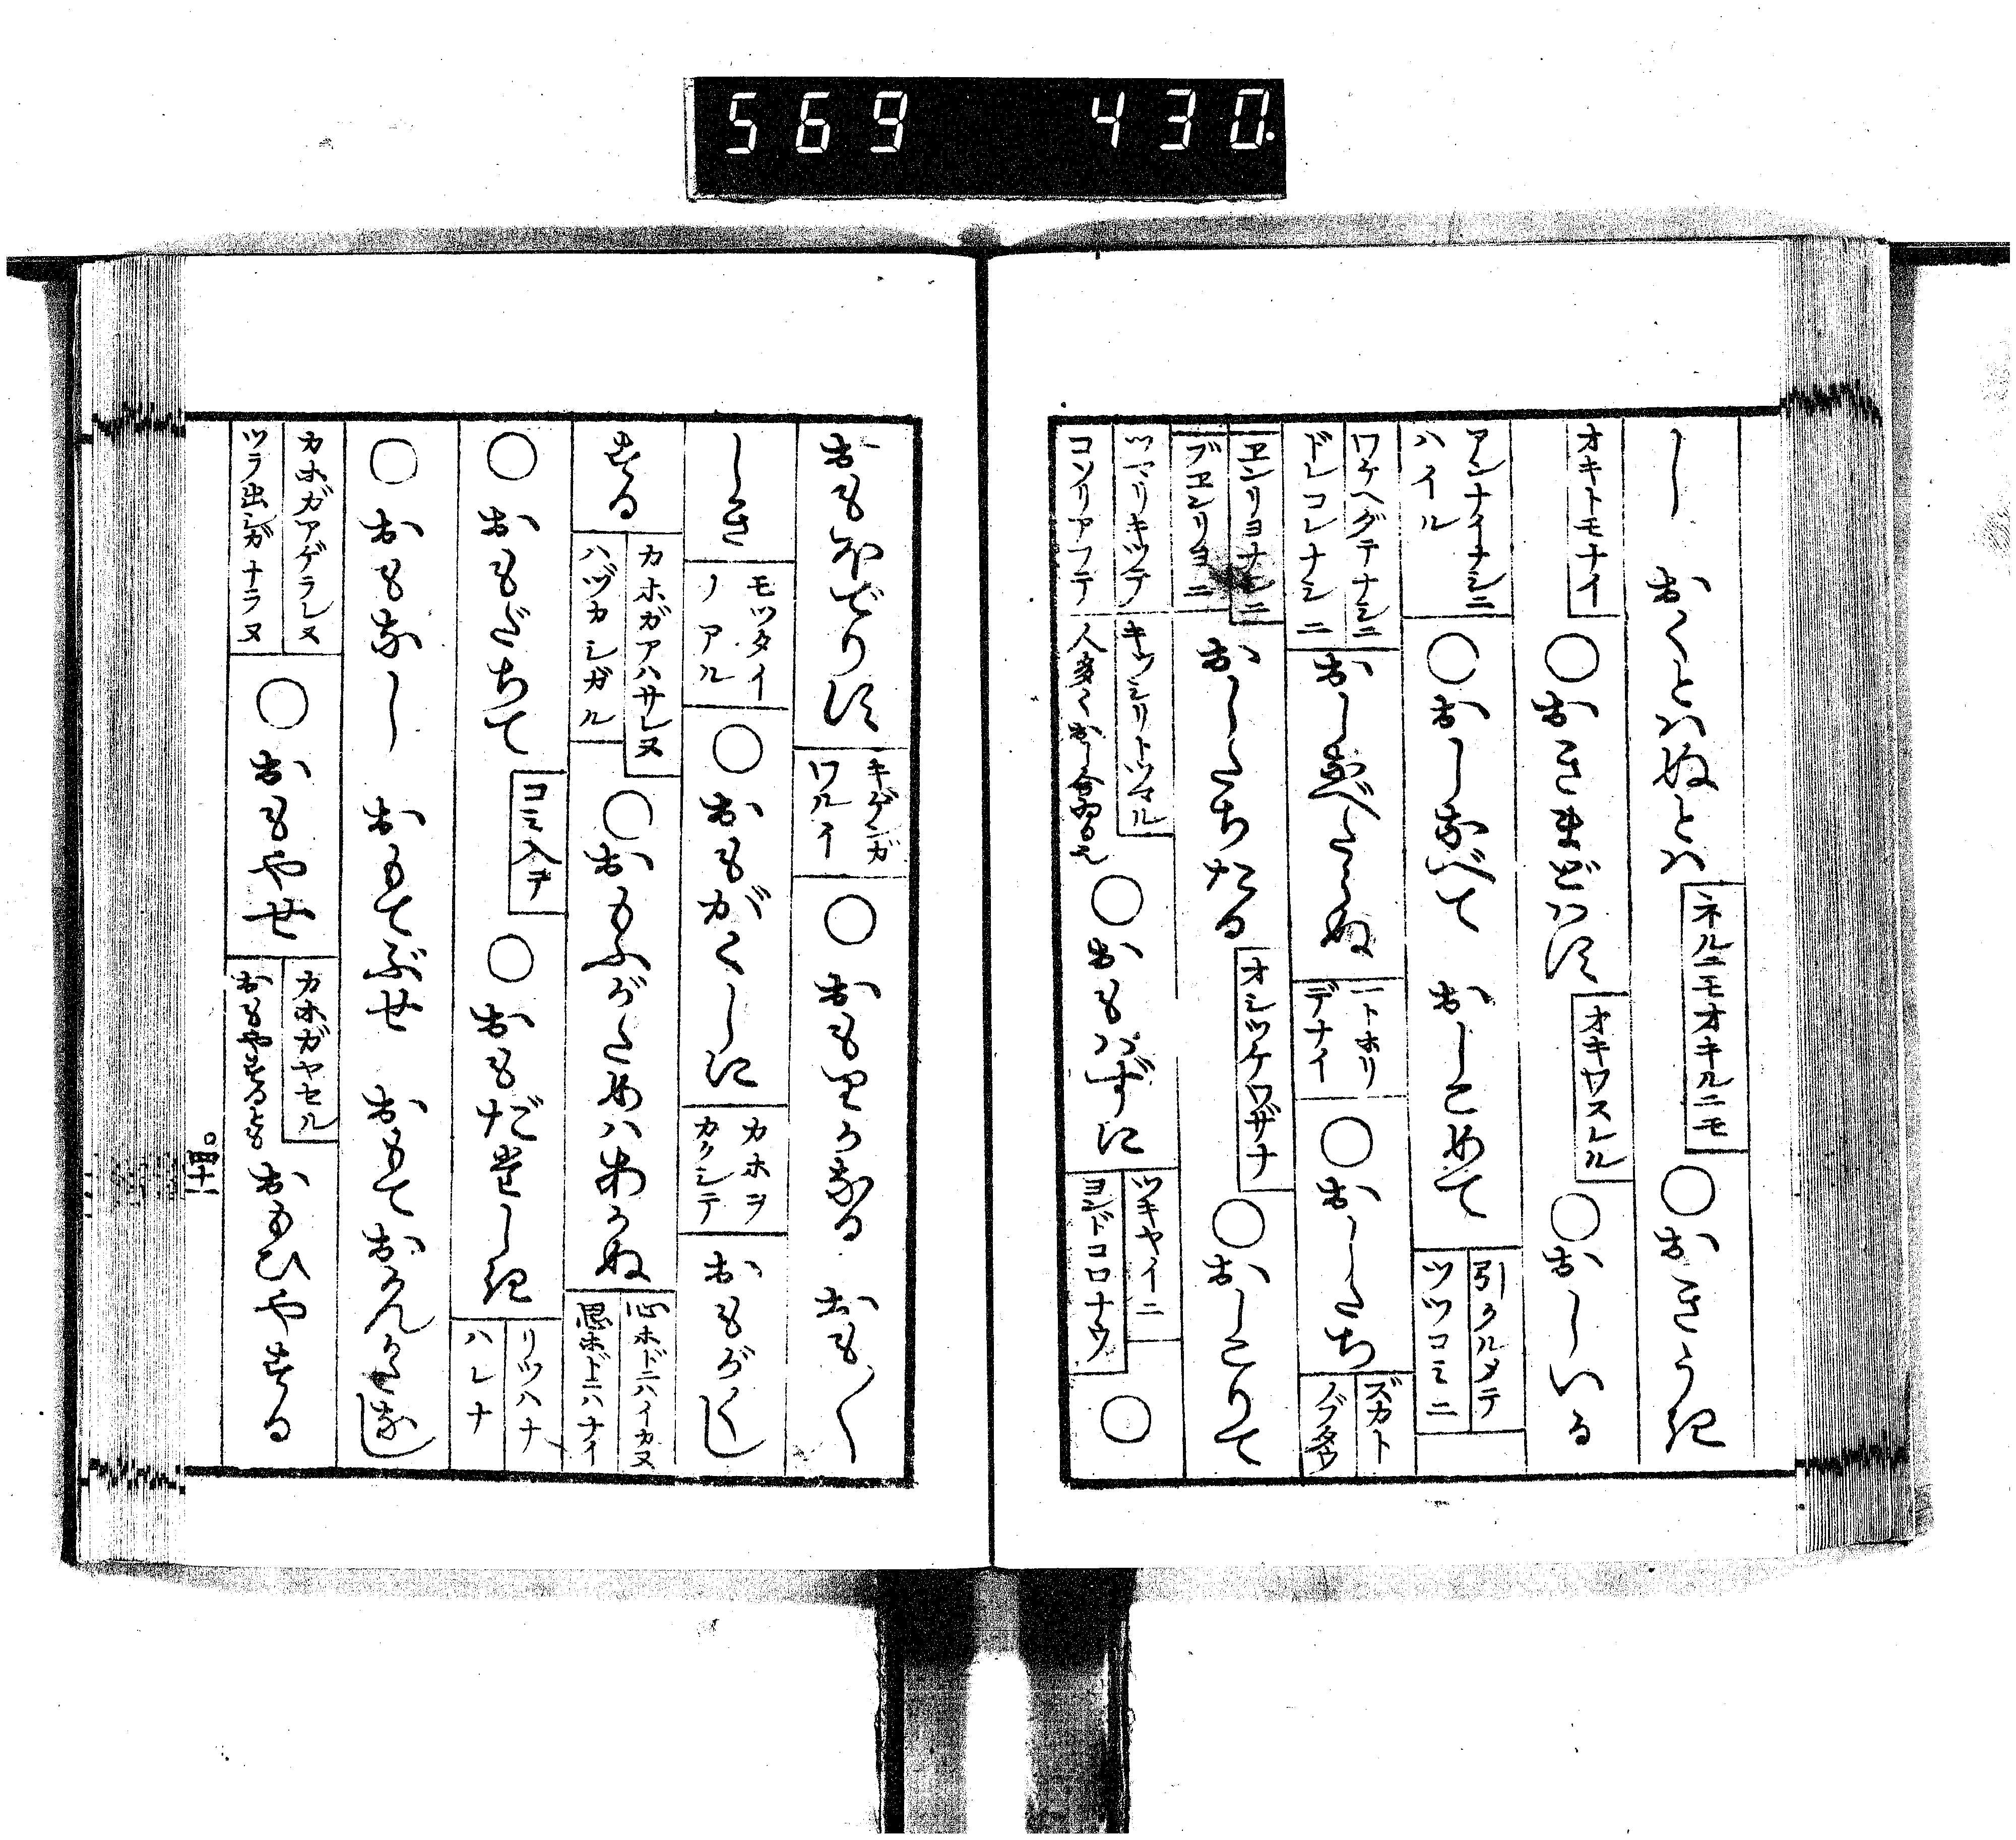 569 430.
し おくとハぬとハ
ネルニモオキルニモ
○おきうき
オキトモナイ
○おきまどハす
オキワスレル
○おしいる
アンナイナシニ
ハイル
○おしなべて おしこめて
引クルメテ
ツツコミニ
ワケヘダテナシニ
ドレコレナシニ
おしなべたらぬ
一トホリ
デナイ
○おしたち
ズカト
エンリヨナシニ
ブエンリヨニ
おしたちたる
オシツケワザナ
○おしこりて
ツマリキツテ
コゾリアフテ
キツシリトツマル
○おもハずに
ツキヤイニ
ヨンドコロナウ
○
おもほでりす
キゲンガ
ワルイ
○おもりかなる おも〳〵
しき
モツタイ
ノアル
○おもがくしに
カホヲ
カクシテ
おもがくし
する
カホガアハサレヌ
ハヅカシガル
○おもふがためハあかぬ
心ホドニハイカヌ
思ホドニハナイ
○おもだちて
コミ入テ
○おもだゝしき
リツハナ
ハレナ
○おもなし おもてぶせ おもておかんかたなし
カホガアゲラレヌ
ツラ出シガナラヌ
○おもやせ
カホガヤセル
おもやするとも
おもひやする
四十一